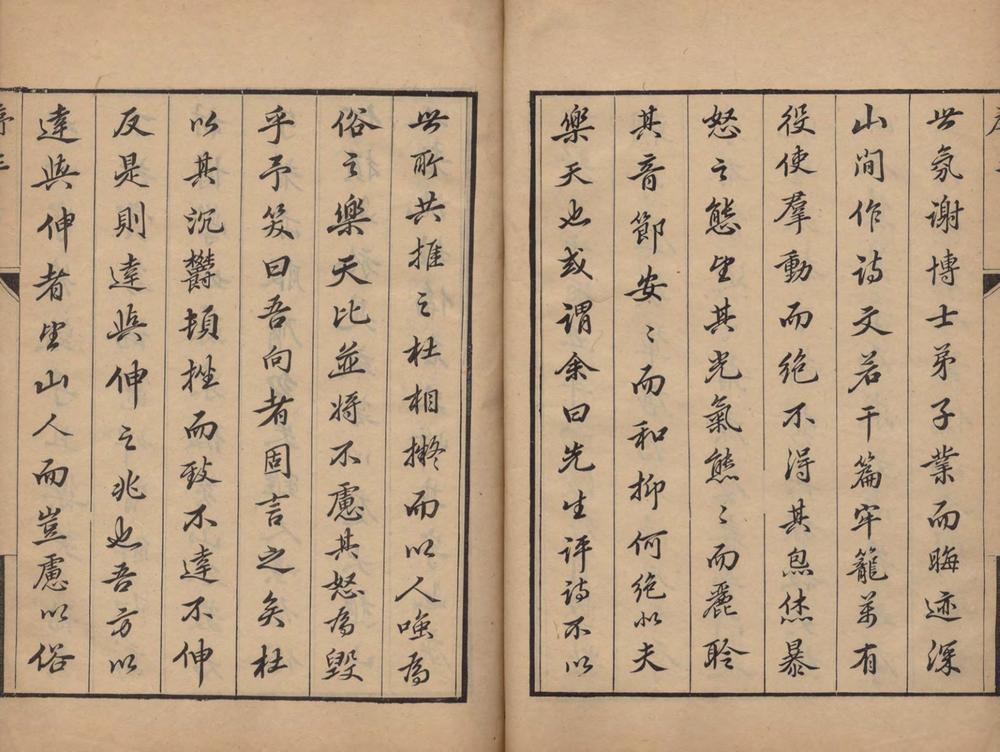 世氛謝博士弟子業而晦迹深
山間作詩文若干篇牢籠萬有
役使羣動而絶不得其炰烋暴
怒之態望其光氣熊〻而麗聆
其音節安〻而和抑何絶似夫
樂天也或謂余曰先生評詩不以
世所共推之杜相擬而以人嗤為
俗之樂天比並將不慮其怒為毀
乎予笑曰吾向者固言之矣杜
以其沉鬱頓挫而致不達不伸
反是則達與伸之兆也吾方以
達與伸者望山人而豈慮以俗
序三